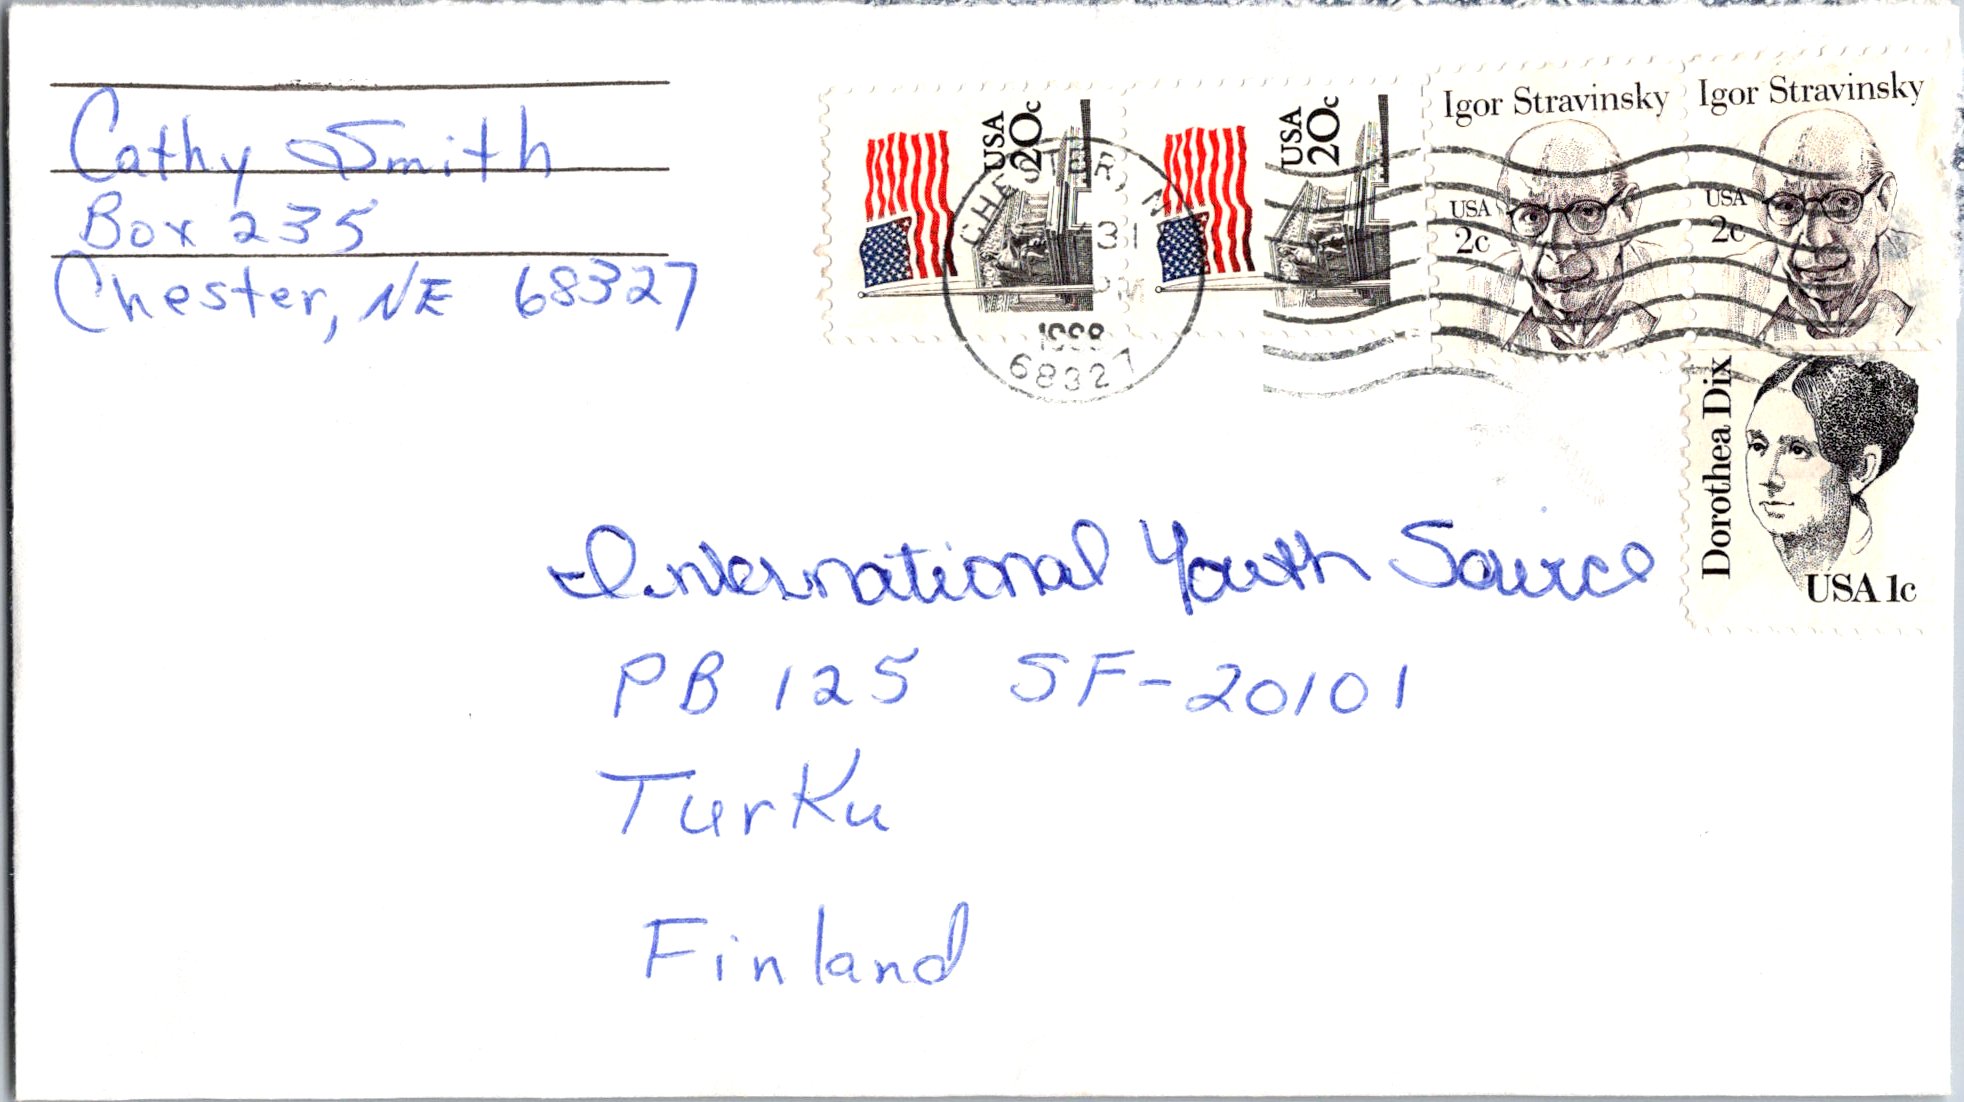 Cathy Smith
Box 235
Chester, NE 68327
USA 20c
USA 20c
Igor Stravinsky
USA
2c
Igor Stravinsky
USA
2c
Dorothea Dix
USA 1c
CHESTER, N
31
PM
1988
68327
International Youth Source
PB 125 SF-20101
Turku
Finland